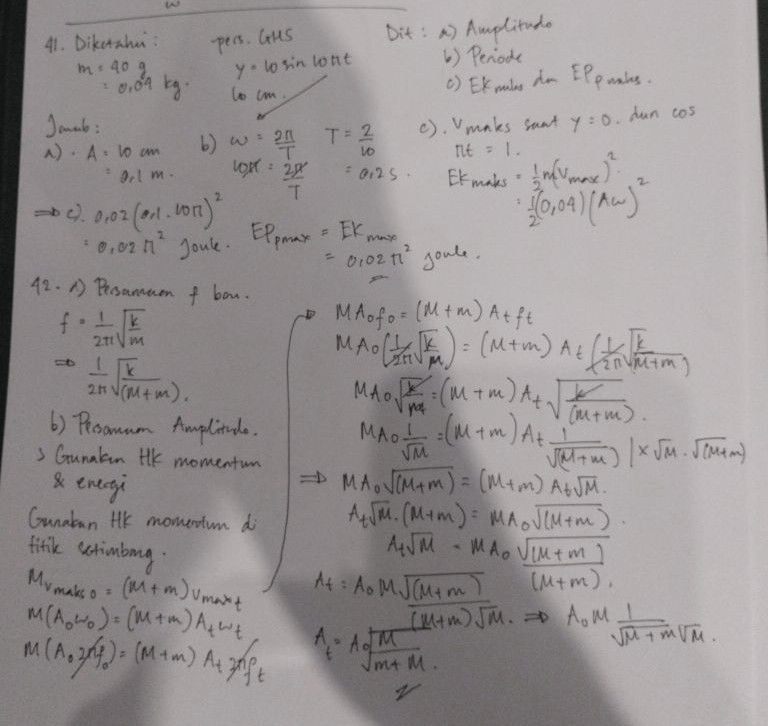 w
41. Diketahui :
m = 40 g
= 0,04 kg.
pers. GHS
y = 10 sin 10πt
10 cm.
Dit : a) Amplitudo
b) Periode
c) EK maks dan EPp maks.
Jawab :
a) • A = 10 cm
= 0,1 m.
b) ω = 2π/T
10π = 2π/T
T = 2/10
= 0,2 s.
c). Vmaks saat y = 0. dan cos
πt = 1.
EK maks = 1/2 m(Vmax)²
= 1/2 (0,04) (Aω)²
⇒ c). 0,02 (0,1 . 10π)²
= 0,02 π² Joule.
EPpmax = EK max
= 0,02 π² joule.
42. a) Persamaan f baru.
f = 1/2π √(k/m)
⇒ 1/2π √(k/(M+m)).
b) Persamaan Amplitudo.
> Gunakan HK momentum
& energi
Gunakan HK momentum di
titik setimbang.
M Vmaks 0 = (M+m) Vmax t
M(A₀ω₀) = (M+m) At ωt
M(A₀ 2πf₀) = (M+m) At 2πft
MA₀f₀ = (M+m) At ft
MA₀ (1/2π √(k/M)) = (M+m) At (1/2π √(k/(M+m)))
MA₀ √(k/M) = (M+m) At √(k/(M+m)).
MA₀ 1/√M = (M+m) At 1/√(M+m) | × √M . √(M+m)
⇒ MA₀ √(M+m) = (M+m) At √M.
At √M . (M+m) = MA₀ √(M+m) .
At √M = MA₀ √(M+m)/(M+m).
At = A₀ M √(M+m)/(M+m) √M. ⇒ A₀ M 1/√M+m √M.
At = A₀ √M/√m+M.